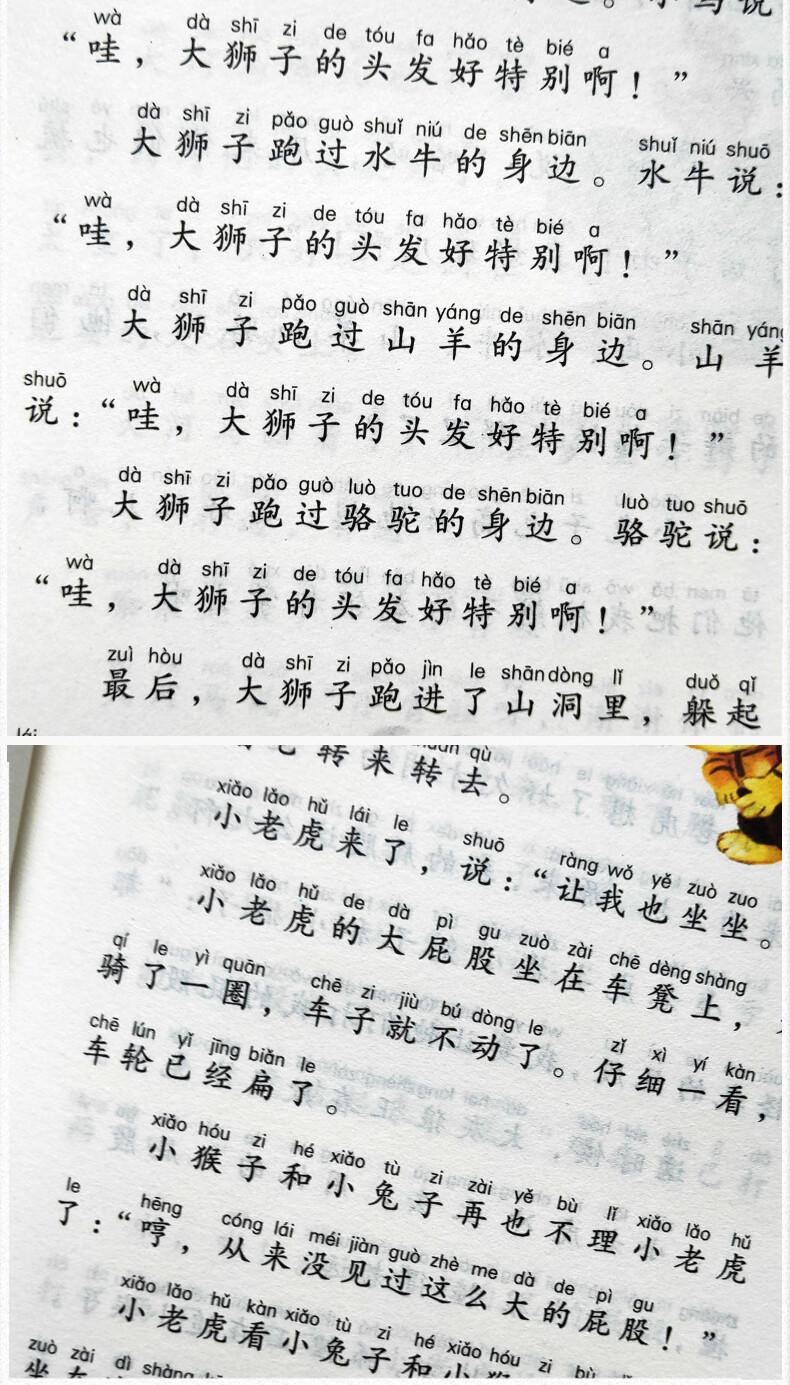 wà dà shī zi de tóu fa hǎo tè bié a
“哇，大狮子的头发好特别啊！”
dà shī zi pǎo guò shuǐ niú de shēn biān shuǐ niú shuō
大狮子跑过水牛的身边。水牛说：
wà dà shī zi de tóu fa hǎo tè bié a
“哇，大狮子的头发好特别啊！”
dà shī zi pǎo guò shān yáng de shēn biān shān yáng
大狮子跑过山羊的身边。山羊
shuō wà dà shī zi de tóu fa hǎo tè bié a
说：“哇，大狮子的头发好特别啊！”
dà shī zi pǎo guò luò tuo de shēn biān luò tuo shuō
大狮子跑过骆驼的身边。骆驼说：
wà dà shī zi de tóu fa hǎo tè bié a
“哇，大狮子的头发好特别啊！”
zuì hòu dà shī zi pǎo jìn le shān dòng lǐ duǒ qǐ
最后，大狮子跑进了山洞里，躲起
lái
qù
转来转去。
xiǎo lǎo hǔ lái le shuō ràng wǒ yě zuò zuo
小老虎来了，说：“让我也坐坐。
xiǎo lǎo hǔ de dà pì gu zuò zài chē dèng shàng
小老虎的大屁股坐在车凳上，
qí le yì quān chē zi jiù bú dòng le zǐ xì yí kàn
骑了一圈，车子就不动了。仔细一看，
chē lún yǐ jīng biǎn le
车轮已经扁了。
xiǎo hóu zi hé xiǎo tù zi zài yě bù lǐ xiǎo lǎo hǔ
小猴子和小兔子再也不理小老虎
le hēng cóng lái méi jiàn guò zhè me dà de pì gu
了：“哼，从来没见过这么大的屁股！”
xiǎo lǎo hǔ kàn xiǎo tù zi hé xiǎo hóu zi bù
小老虎看小兔子和小猴
zuò zài dì shàng
坐在